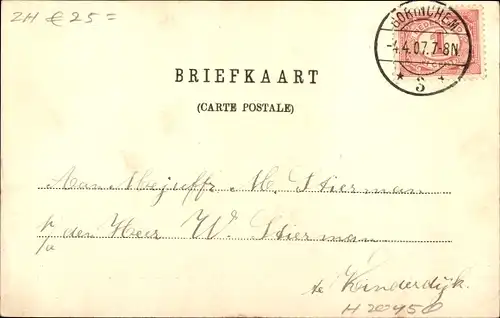 ZH € 25=
GORINCHEM
-4.4.07.7-8N
* S *
BRIEFKAART
(CARTE POSTALE)
Aan Mejuffr. M. Stierman
p/a den Heer W. Stierman
te Kinderdijk.
H 20450